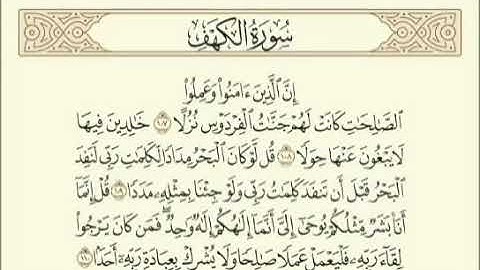 سُورَةُ الكَهْفِ
إِنَّ ٱلَّذِينَ ءَامَنُوا۟ وَعَمِلُوا۟
ٱلصَّـٰلِحَـٰتِ كَانَتْ لَهُمْ جَنَّـٰتُ ٱلْفِرْدَوْسِ نُزُلًا ١٠٧ خَـٰلِدِينَ فِيهَا
لَا يَبْغُونَ عَنْهَا حِوَلًا ١٠٨ قُل لَّوْ كَانَ ٱلْبَحْرُ مِدَادًا لِّكَلِمَـٰتِ رَبِّى لَنَفِدَ
ٱلْبَحْرُ قَبْلَ أَن تَنفَدَ كَلِمَـٰتُ رَبِّى وَلَوْ جِئْنَا بِمِثْلِهِۦ مَدَدًا ١٠٩ قُلْ إِنَّمَآ
أَنَا۠ بَشَرٌ مِّثْلُكُمْ يُوحَىٰٓ إِلَىَّ أَنَّمَآ إِلَـٰهُكُمْ إِلَـٰهٌ وَٰحِدٌ ۖ فَمَن كَانَ يَرْجُوا۟
لِقَآءَ رَبِّهِۦ فَلْيَعْمَلْ عَمَلًا صَـٰلِحًا وَلَا يُشْرِكْ بِعِبَادَةِ رَبِّهِۦٓ أَحَدًۢا ١١٠